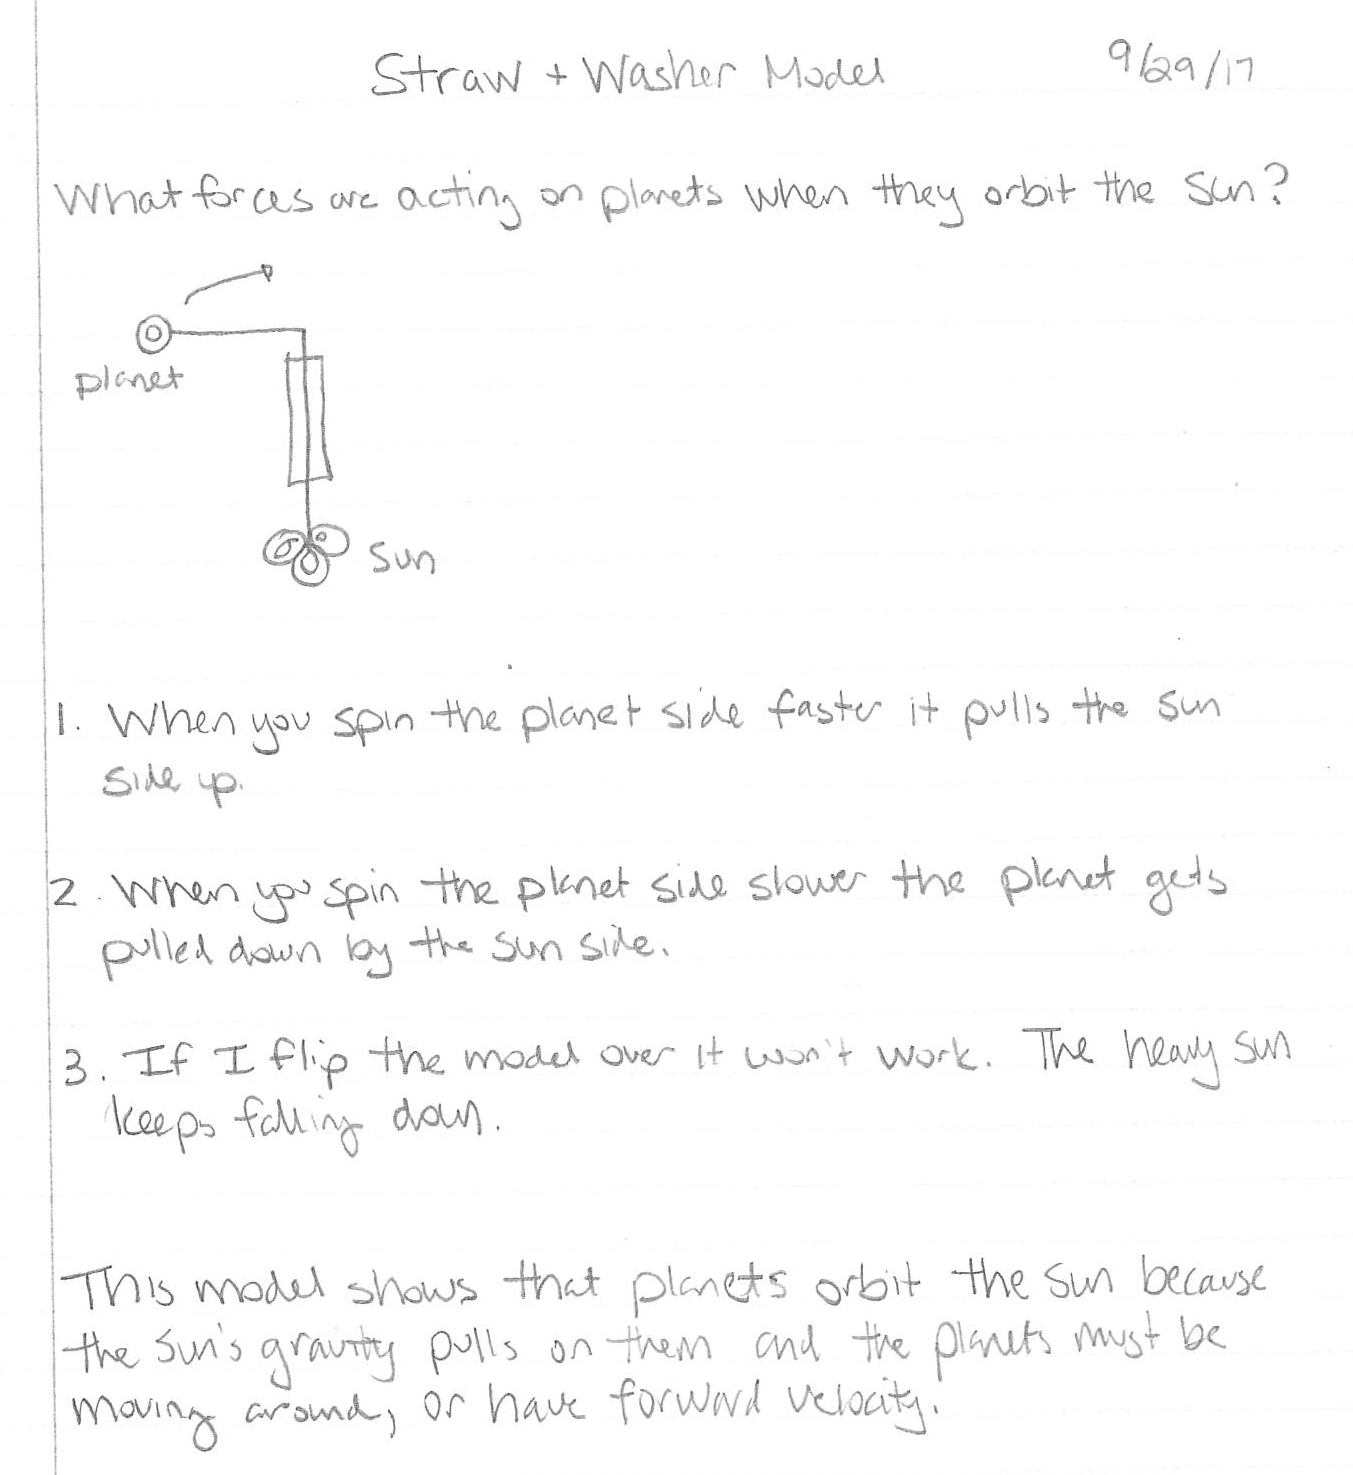 Straw + Washer Model 9/29/17
What forces are acting on planets when they orbit the Sun?
planet
Sun
1. When you spin the planet side faster it pulls the sun
side up.
2. When you spin the planet side slower the planet gets
pulled down by the sun side.
3. If I flip the model over it won't work. The heavy sun
keeps falling down.
This model shows that planets orbit the sun because
the sun's gravity pulls on them and the planets must be
moving around, or have forward velocity.